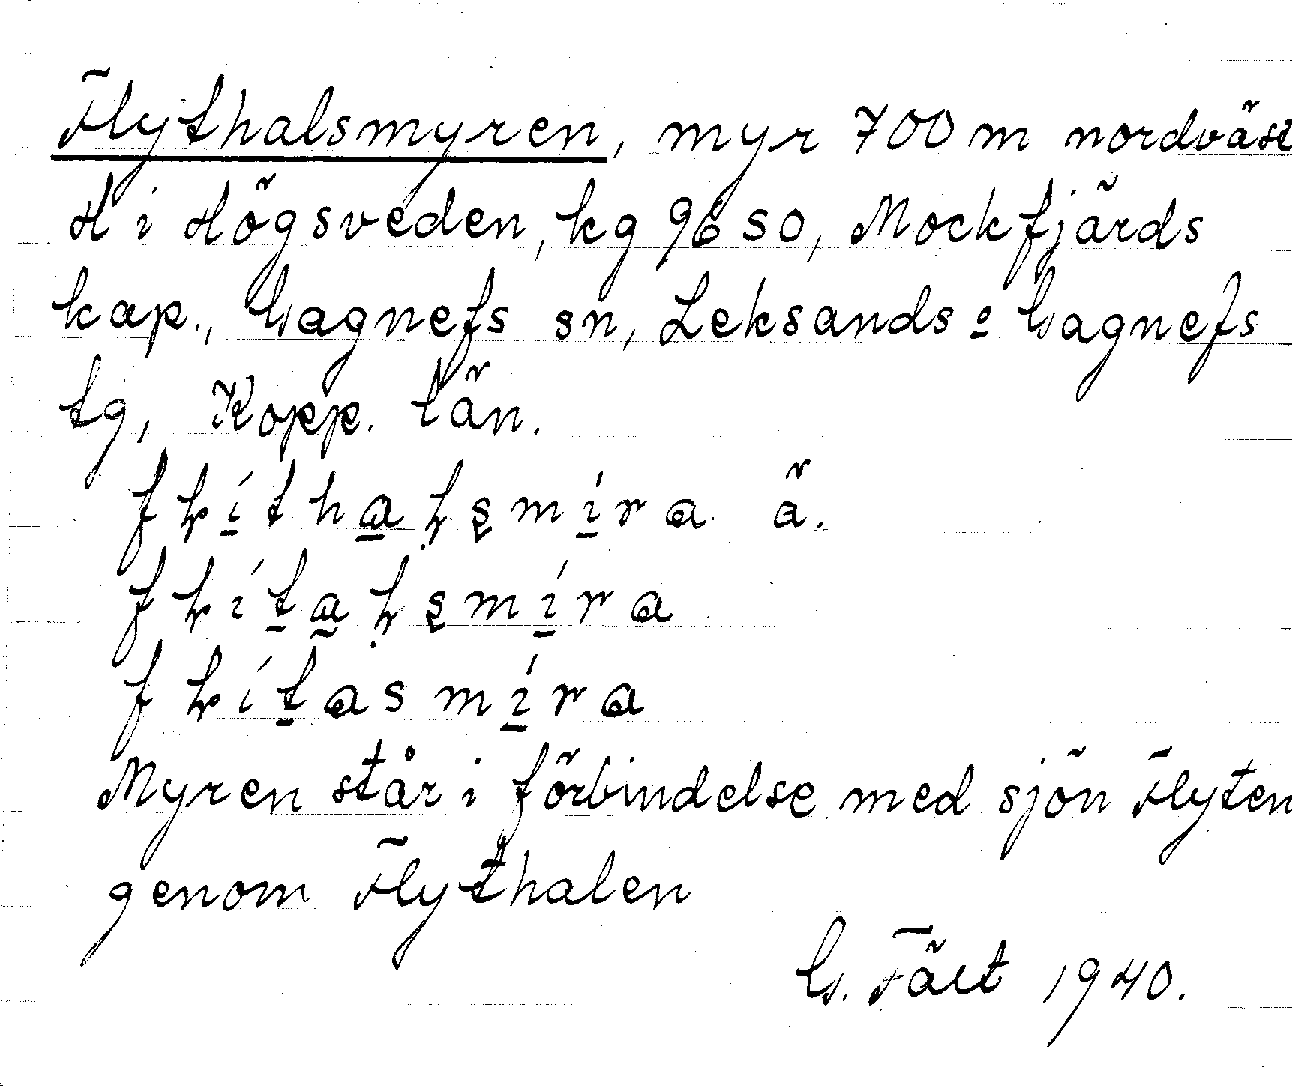 Flythalsmyren, myr 700 m nordväst
H i Högsveden, kg 96 SO, Mockfjärds
kap., Gagnefs sn, Leksands o Gagnefs
tg, Kopp. län.
ä.
Myren står i förbindelse med sjön Flyten
genom Flythalen
G. Fält 1940.